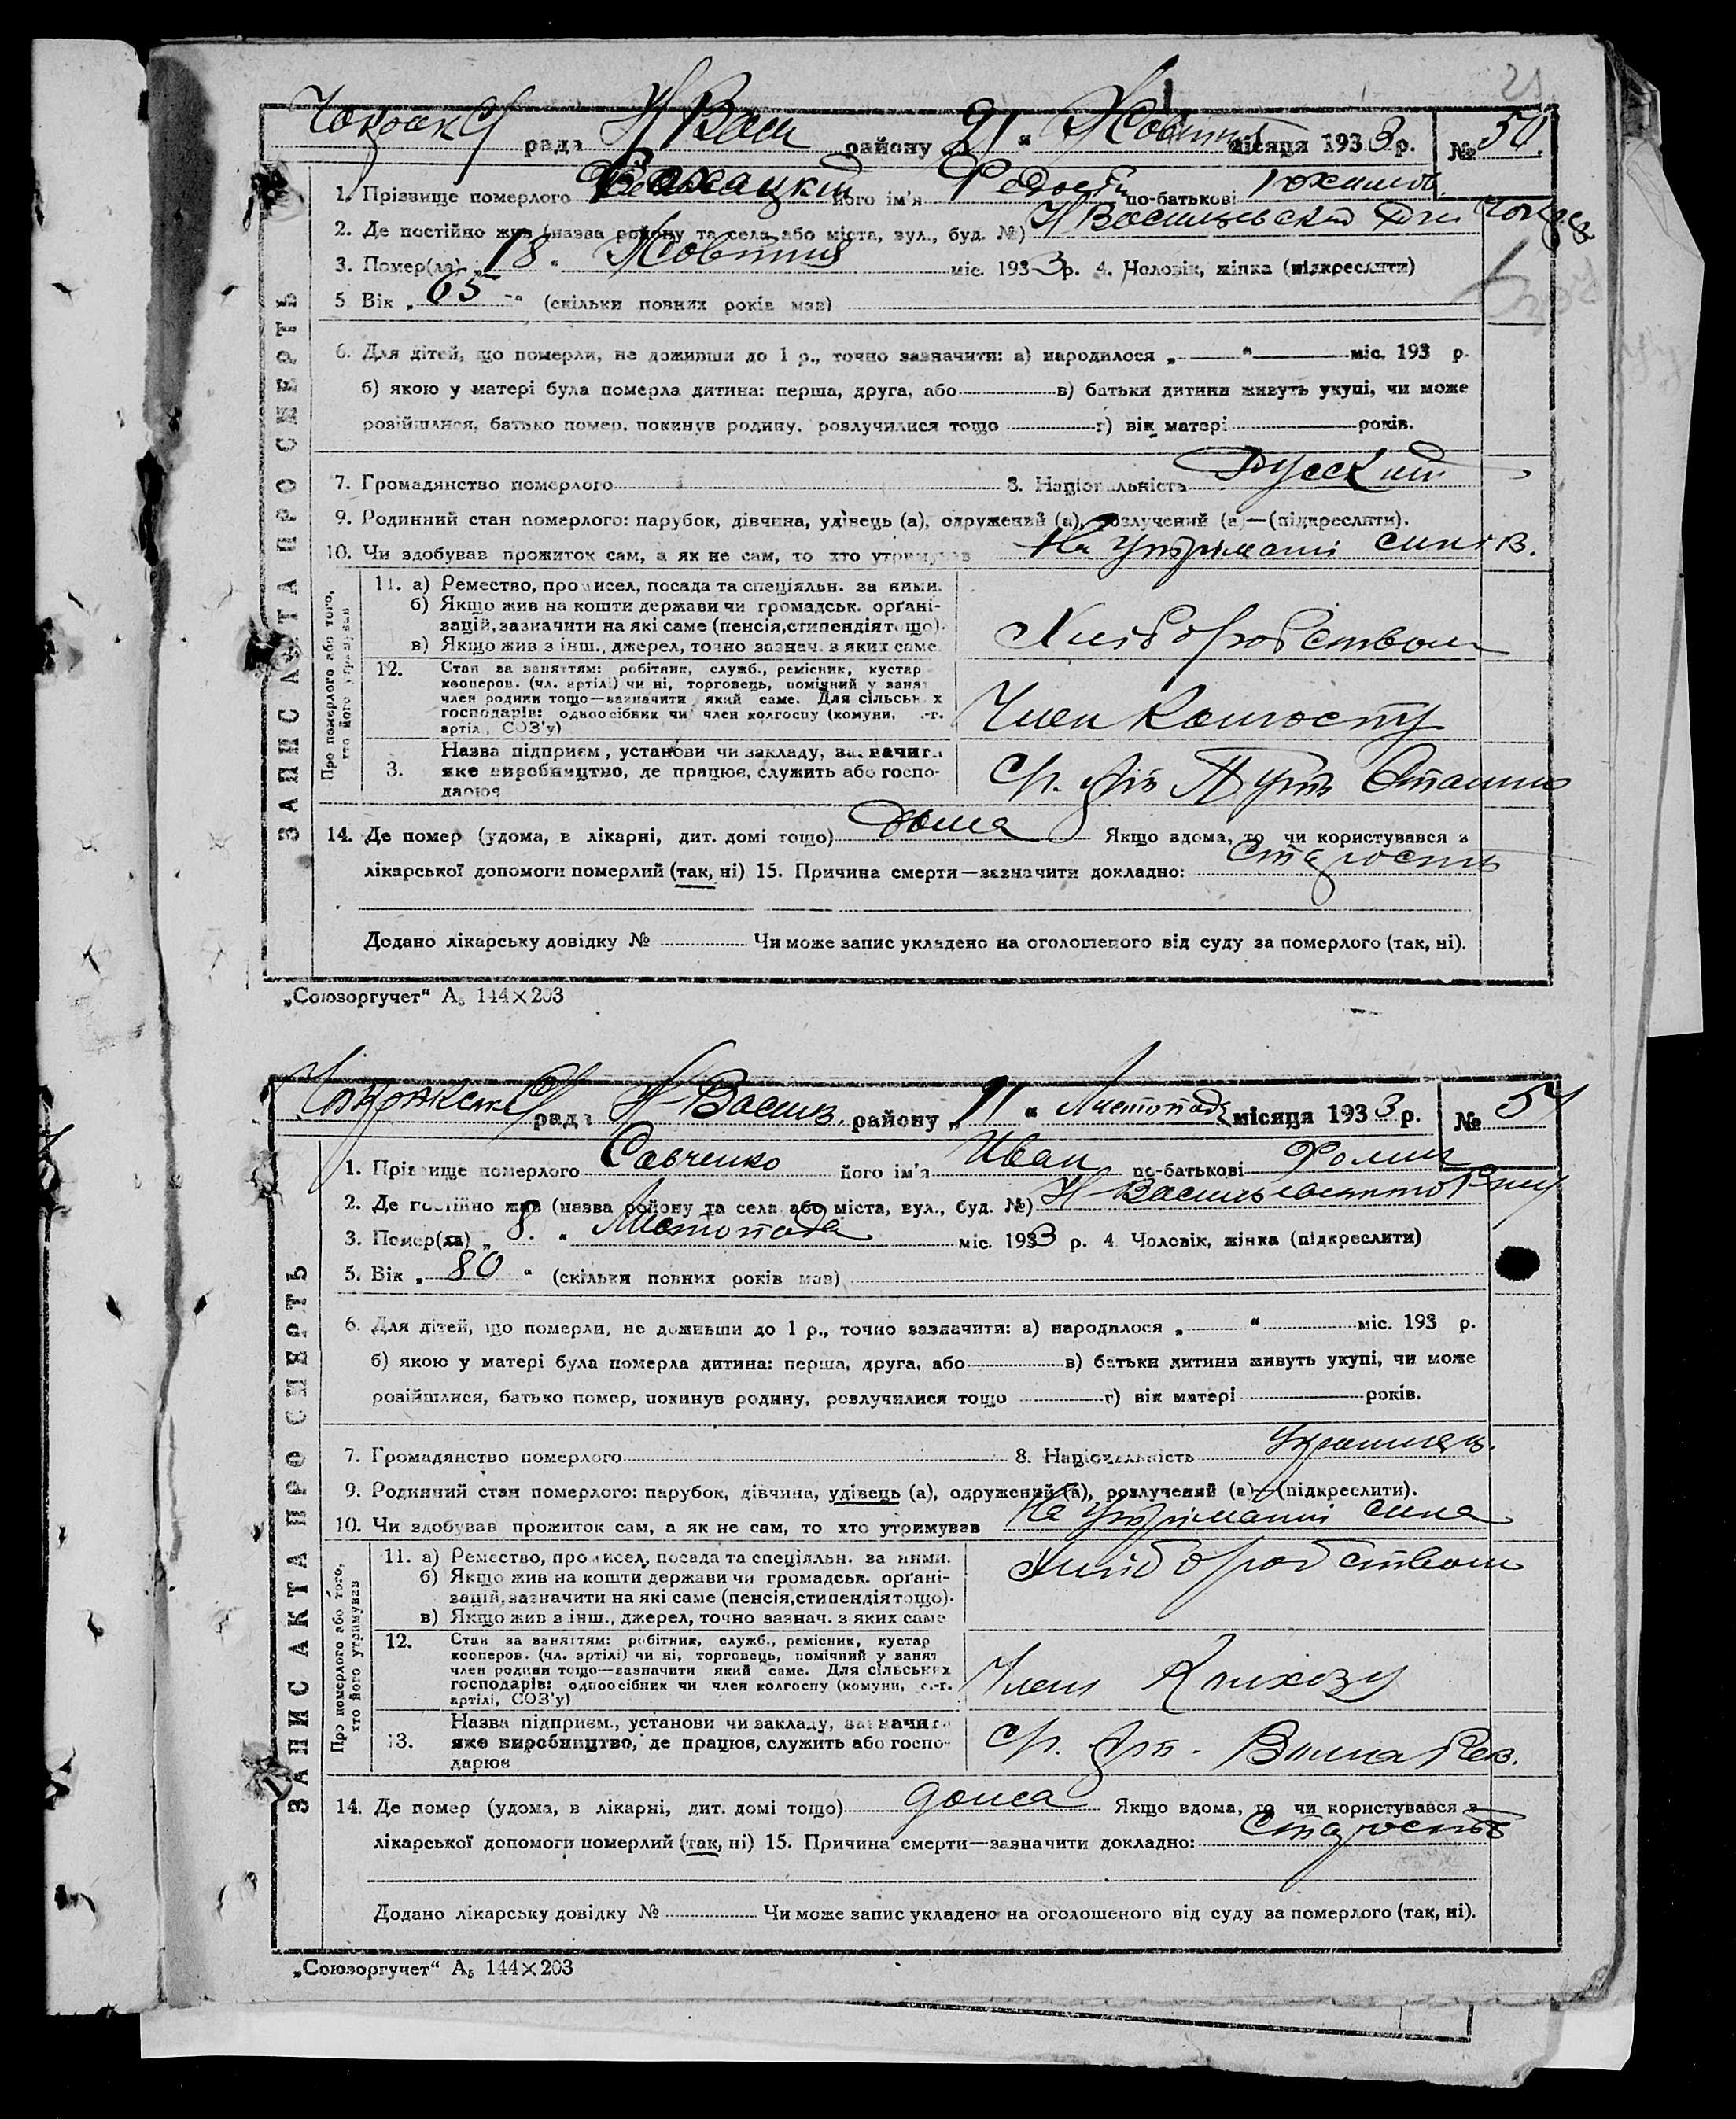 21
рада Н Вас району 21 " Жовтня місяця 1933 р. № 50.
1. Прізвище померлого його ім'я Федось по-батькові
2. Де постійно жив (назва району та села або міста, вул., буд. №) Н Васильевский
3. Помер(ла) „18 " Жовтня міс. 1933 р. 4. Чоловік, жінка (підкреслити)
5 Вік „ 65 " (скільки повних років мав)
6. Для дітей, що померли, не доживши до 1 р., точно зазначити: а) народилося „ " міс. 193 р.
б) якою у матері була померла дитина: перша, друга, або в) батьки дитини живуть укупі, чи може
розійшлися, батько помер, покинув родину, розлучилися тощо г) вік матері років.
7. Громадянство померлого 8. Національність Русский
9. Родинний стан померлого: парубок, дівчина, удівець (а), одружений (а), розлучений (а)—(підкреслити).
10. Чи здобував прожиток сам, а як не сам, то хто утримував На утріманні синів.
ЗАПИС АКТА ПРО СМЕРТЬ
Про померлого або того, хто його утримував
11. а) Ремество, промисел, посада та спеціяльн. за ними.
б) Якщо жив на кошти держави чи громадськ. орґані-
зацій, зазначити на які саме (пенсія, стипендія тощо).
в) Якщо жив з інш., джерел, точно зазнач. з яких саме.
Хліборобством
12. Стан за заняттям: робітник, служб., ремісник, кустар
кооперов. (чл. артілі) чи ні, торговець, помічний у занят
член родини тощо—зазначити який саме. Для сільських
господарів: одноосібник чи член колгоспу (комуни, с.-г.
артілі, СОЗ'у)
Член Колгоспу
3. Назва підприєм., установи чи закладу, зазначити
яке виробництво, де працює, служить або госпо-
дарює
Ср. арт Путь Сталина
14. Де помер (удома, в лікарні, дит. домі тощо) дома Якщо вдома, то чи користувався з
лікарської допомоги померлий (так, ні) 15. Причина смерти—зазначити докладно: Старость
Додано лікарську довідку № Чи може запис укладено на оголошеного від суду за померлого (так, ні).
„Союзоргучет" А₅ 144×203
рада Н-Васил. району „11 " Листопада місяця 1933 р. № 51
1. Прізвище померлого Савченко його ім'я Иван по-батькові Фомич
2. Де постійно жив (назва району та села або міста, вул., буд. №) Н-Васильевского Рну
3. Помер(ла) „ 8. " Листопада міс. 1933 р. 4 Чоловік, жінка (підкреслити)
5. Вік „ 80 " (скільки повних років мав)
6. Для дітей, що померли, не доживши до 1 р., точно зазначити: а) народилося „ " міс. 193 р.
б) якою у матері була померла дитина: перша, друга, або в) батьки дитини живуть укупі, чи може
розійшлися, батько помер, покинув родину, розлучилися тощо г) вік матері років.
7. Громадянство померлого 8. Національність Украинец.
9. Родинний стан померлого: парубок, дівчина, удівець (а), одружений (а), розлучений (а)—(підкреслити).
10. Чи здобував прожиток сам, а як не сам, то хто утримував На утріманні сина
ЗАПИС АКТА ПРО СМЕРТЬ
Про померлого або того, хто його утримував
11. а) Ремество, промисел, посада та спеціяльн. за ними.
б) Якщо жив на кошти держави чи громадськ. орґані-
зацій, зазначити на які саме (пенсія, стипендія тощо).
в) Якщо жив з інш., джерел, точно зазнач. з яких саме
Хліборобством
12. Стан за заняттям: робітник, служб., ремісник, кустар
кооперов. (чл. артілі) чи ні, торговець, помічний у занят
член родини тощо—зазначити який саме. Для сільських
господарів: одноосібник чи член колгоспу (комуни, с.-г.
артілі, СОЗ'у)
Член Колхозу
13. Назва підприєм., установи чи закладу, зазначити
яке виробництво, де працює, служить або госпо-
дарює
Ср. арт.
14. Де помер (удома, в лікарні, дит. домі тощо) дома Якщо вдома, то чи користувався з
лікарської допомоги померлий (так, ні) 15. Причина смерти—зазначити докладно: Старость
Додано лікарську довідку № Чи може запис укладено на оголошеного від суду за померлого (так, ні).
„Союзоргучет" А₅ 144×203